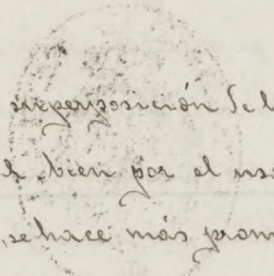 superposición se l
l, bien por el uso
, se hace más prom